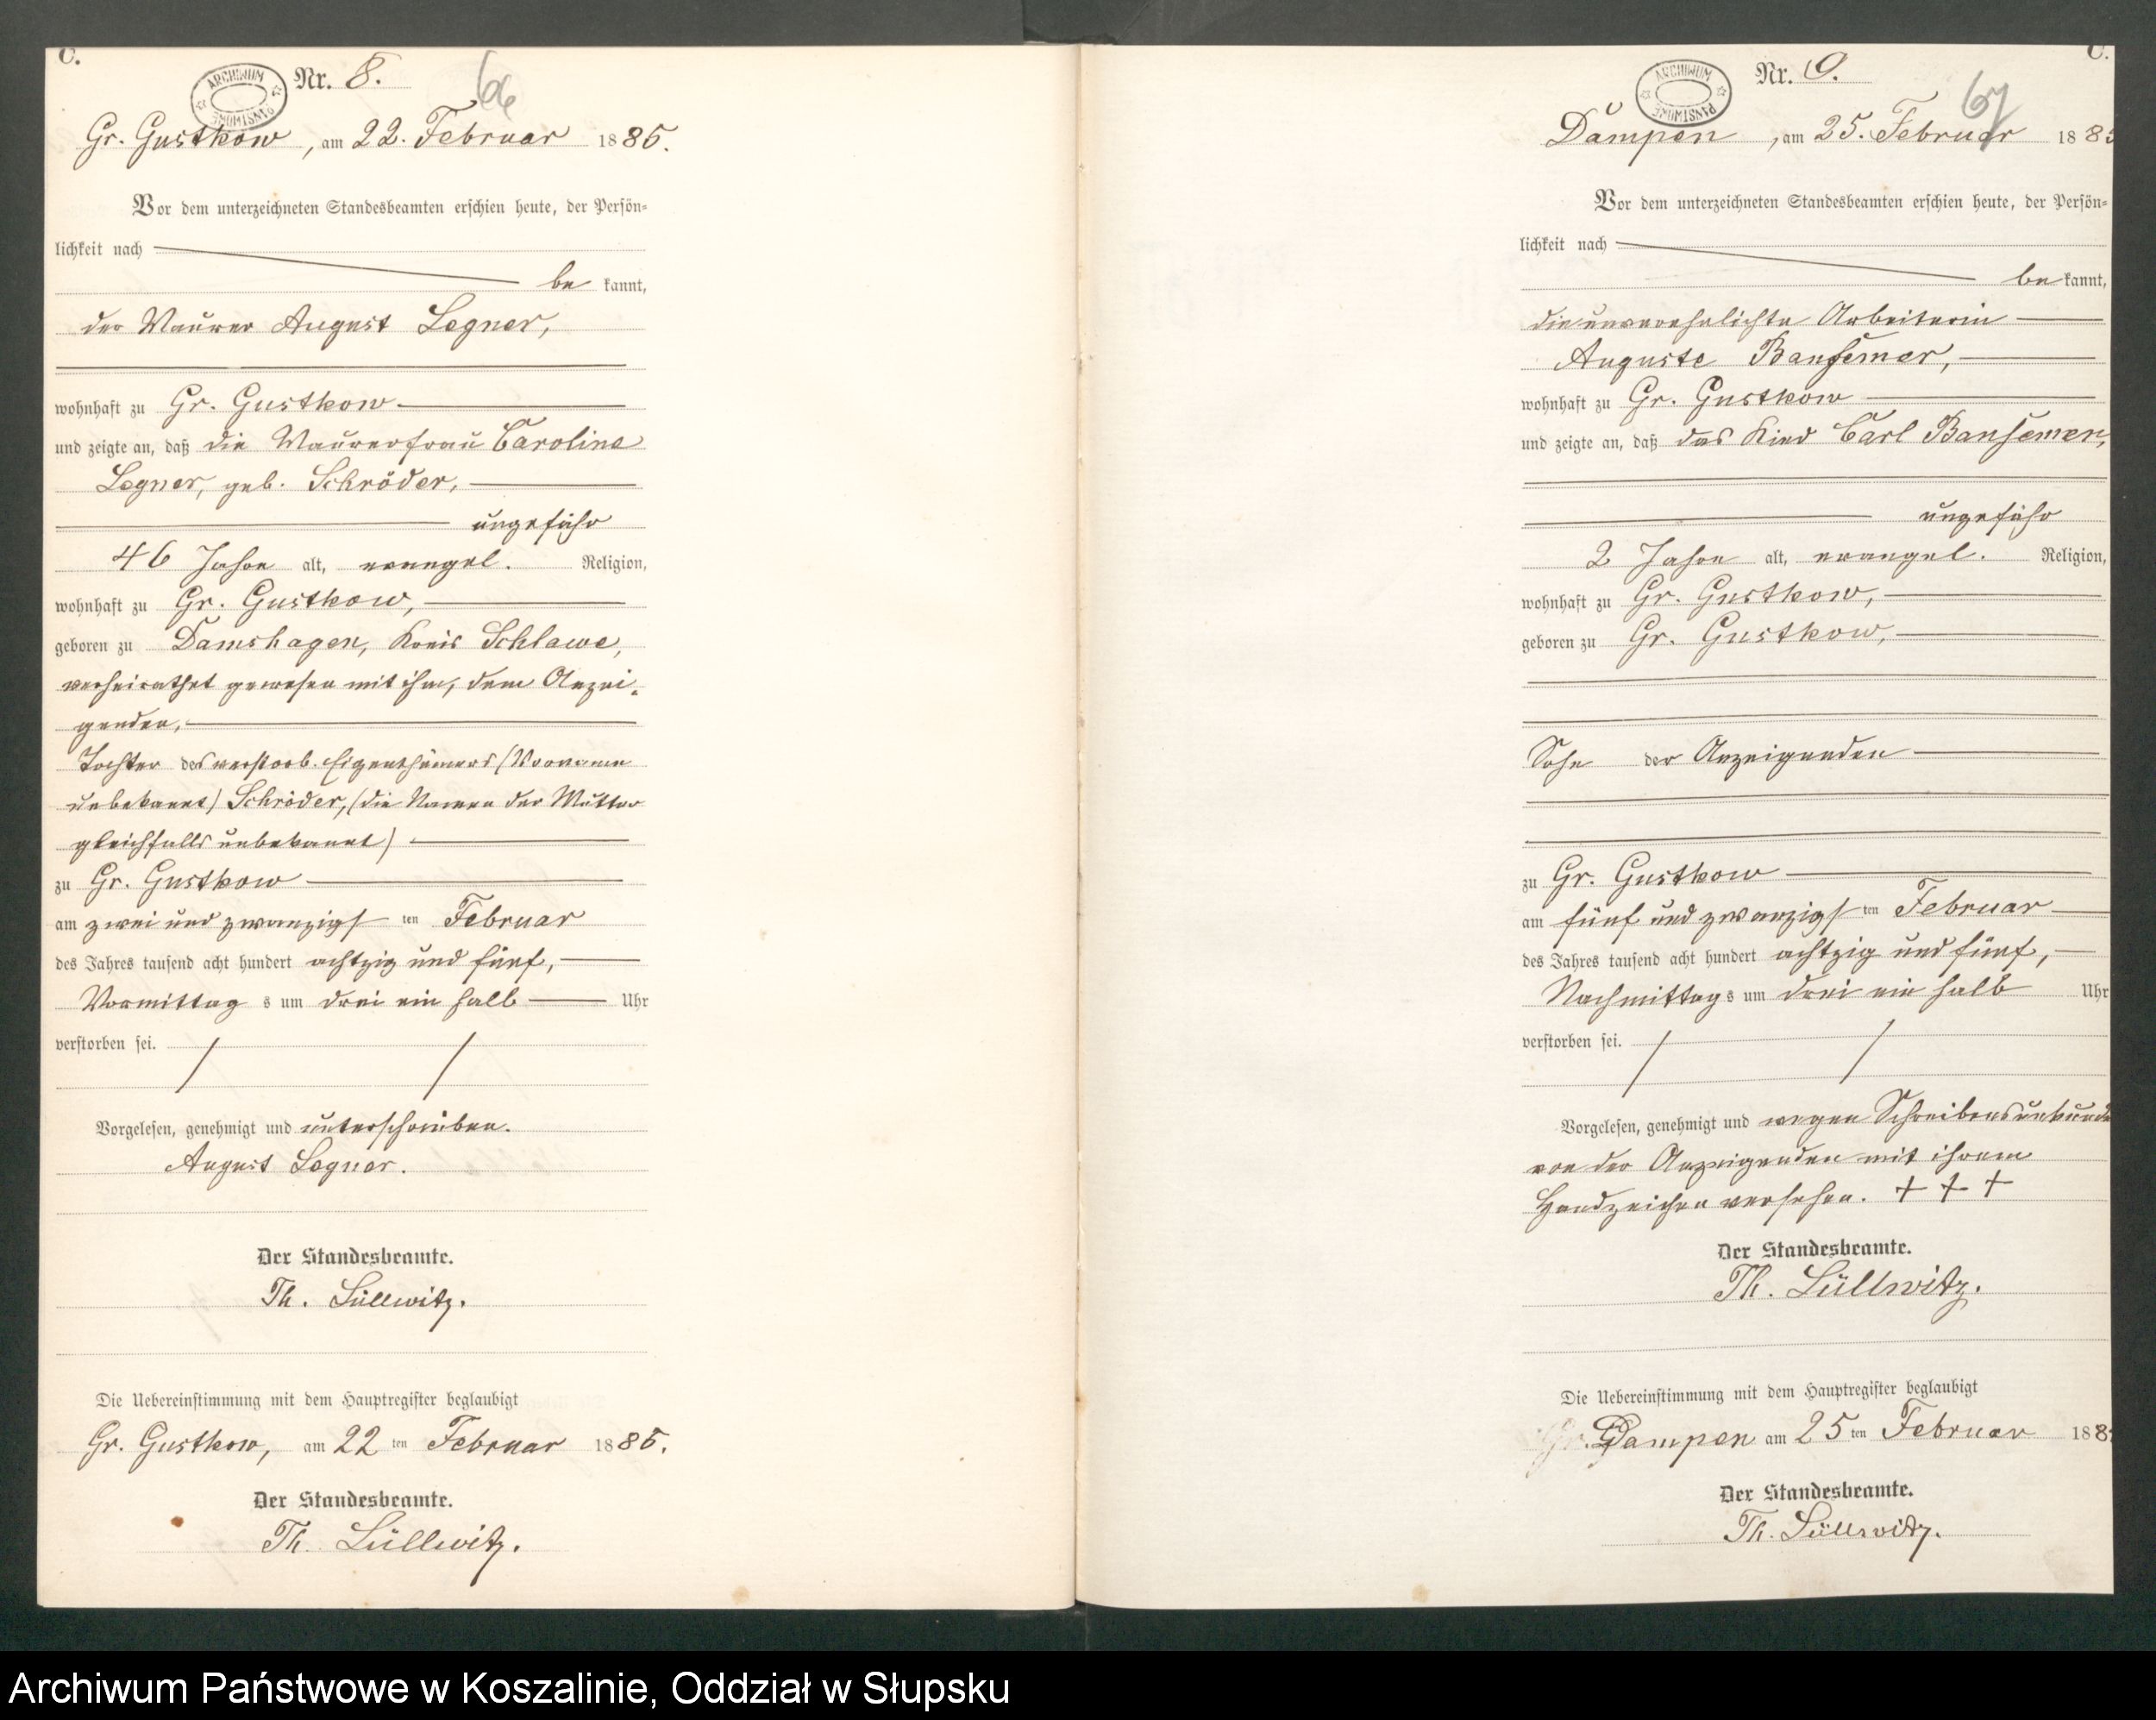 C.
ARCHIWUM PAŃSTWOWE
Nr. 8.
66
Gr. Gustkow, am 22. Februar 1885.
Vor dem unterzeichneten Standesbeamten erschien heute, der Persön=
lichkeit nach
be kannt,
der Maurer August Legner,
wohnhaft zu Gr. Gustkow
und zeigte an, daß die Maurerfrau Caroline
Legner, geb. Schröder,
ungefähr
46 Jahre alt, evangel. Religion,
wohnhaft zu Gr. Gustkow,
geboren zu Damshagen, Kreis Schlawe,
verheirathet gewesen mit ihm, dem Anzei-
genden,
Tochter des verstorb. Eigenthümers (Vorname
unbekannt) Schröder, (die Namen der Mutter
gleichfalls unbekannt)
zu Gr. Gustkow
am zwei und zwanzigs ten Februar
des Jahres tausend acht hundert achtzig und fünf,
Vormittag s um drei ein halb Uhr
verstorben sei.
Vorgelesen, genehmigt und unterschrieben.
August Legner.
Der Standesbeamte.
Th. Lüllwitz.
Die Uebereinstimmung mit dem Hauptregister beglaubigt
Gr. Gustkow, am 22 ten Februar 1885.
Der Standesbeamte.
Th. Lüllwitz.
C.
ARCHIWUM PAŃSTWOWE
Nr. 9.
67
Dampen, am 25. Februar 188
Vor dem unterzeichneten Standesbeamten erschien heute, der Persön=
lichkeit nach
be kannt,
die unverehelichte Arbeiterin
Auguste Bansemer,
wohnhaft zu Gr. Gustkow
und zeigte an, daß das Kind Carl Bansemer,
ungefähr
2 Jahre alt, evangel. Religion,
wohnhaft zu Gr. Gustkow,
geboren zu Gr. Gustkow,
Sohn der Anzeigenden
zu Gr. Gustkow
am fünf und zwanzigs ten Februar
des Jahres tausend acht hundert achtzig und fünf,
Nachmittag s um drei ein halb Uhr
verstorben sei.
Vorgelesen, genehmigt und wegen Schreibensunkunde
von der Anzeigenden mit ihrem
Handzeichen versehen. + + +
Der Standesbeamte.
Th. Lüllwitz.
Die Uebereinstimmung mit dem Hauptregister beglaubigt
Dampen am 25 ten Februar 188
Der Standesbeamte.
Th. Lüllwitz.
Archiwum Państwowe w Koszalinie, Oddział w Słupsku